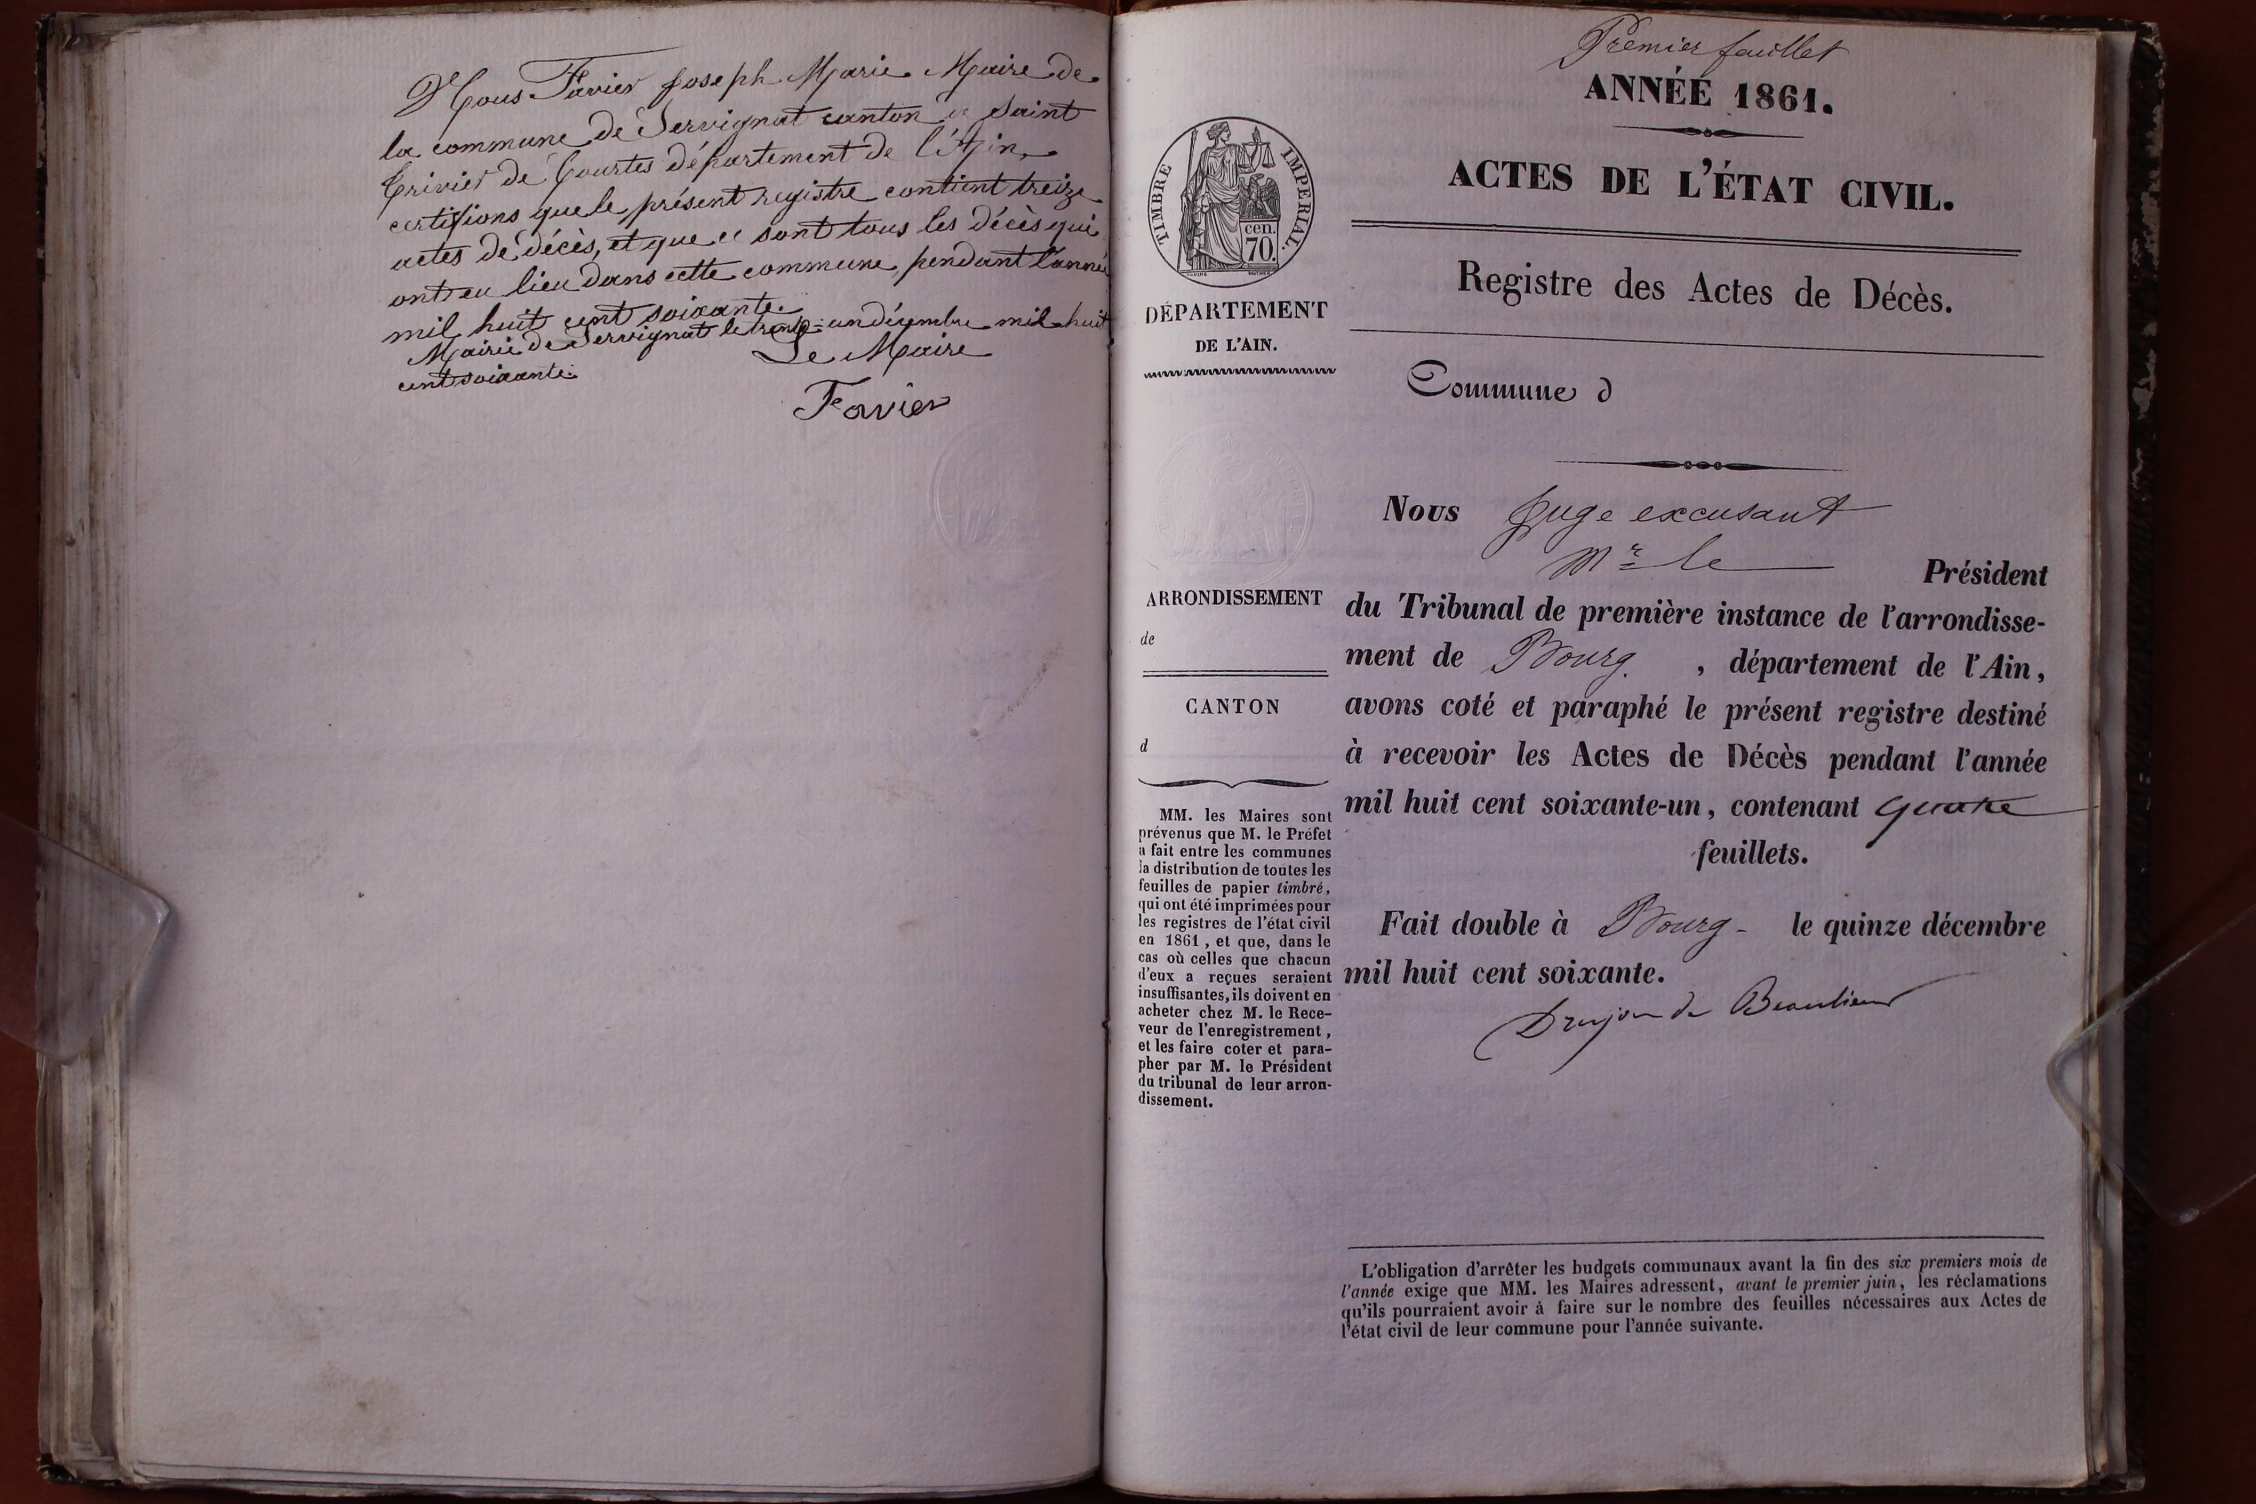 Nous Favier Joseph Marie Maire de
la commune de Servignat canton de Saint
Trivier de Courtes département de l'Ain,
certifions que le présent registre contient treize
actes de décès, et que ce sont tous les décès qui
ont eu lieu dans cette commune pendant l'année
mil huit cent soixante.
Mairie de Servignat le trente-un décembre mil huit
cent soixante.
Le Maire
Favier
Premier feuillet
ANNÉE 1861.
ACTES DE L'ÉTAT CIVIL.
Registre des Actes de Décès.
TIMBRE IMPERIAL.
cen.
70.
DÉPARTEMENT
DE L'AIN.
Commune d
ARRONDISSEMENT
de
CANTON
d
MM. les Maires sont
prévenus que M. le Préfet
a fait entre les communes
la distribution de toutes les
feuilles de papier timbré,
qui ont été imprimées pour
les registres de l'état civil
en 1861, et que, dans le
cas où celles que chacun
d'eux a reçues seraient
insuffisantes, ils doivent en
acheter chez M. le Rece-
veur de l'enregistrement,
et les faire coter et para-
pher par M. le Président
du tribunal de leur arron-
dissement.
Nous Juge excusant
Mr le Président
du Tribunal de première instance de l'arrondisse-
ment de Bourg, département de l'Ain,
avons coté et paraphé le présent registre destiné
à recevoir les Actes de Décès pendant l'année
mil huit cent soixante-un, contenant quatre
feuillets.
Fait double à Bourg - le quinze décembre
mil huit cent soixante.
Drujon de Beaulieu
L'obligation d'arrêter les budgets communaux avant la fin des six premiers mois de
l'année exige que MM. les Maires adressent, avant le premier juin, les réclamations
qu'ils pourraient avoir à faire sur le nombre des feuilles nécessaires aux Actes de
l'état civil de leur commune pour l'année suivante.